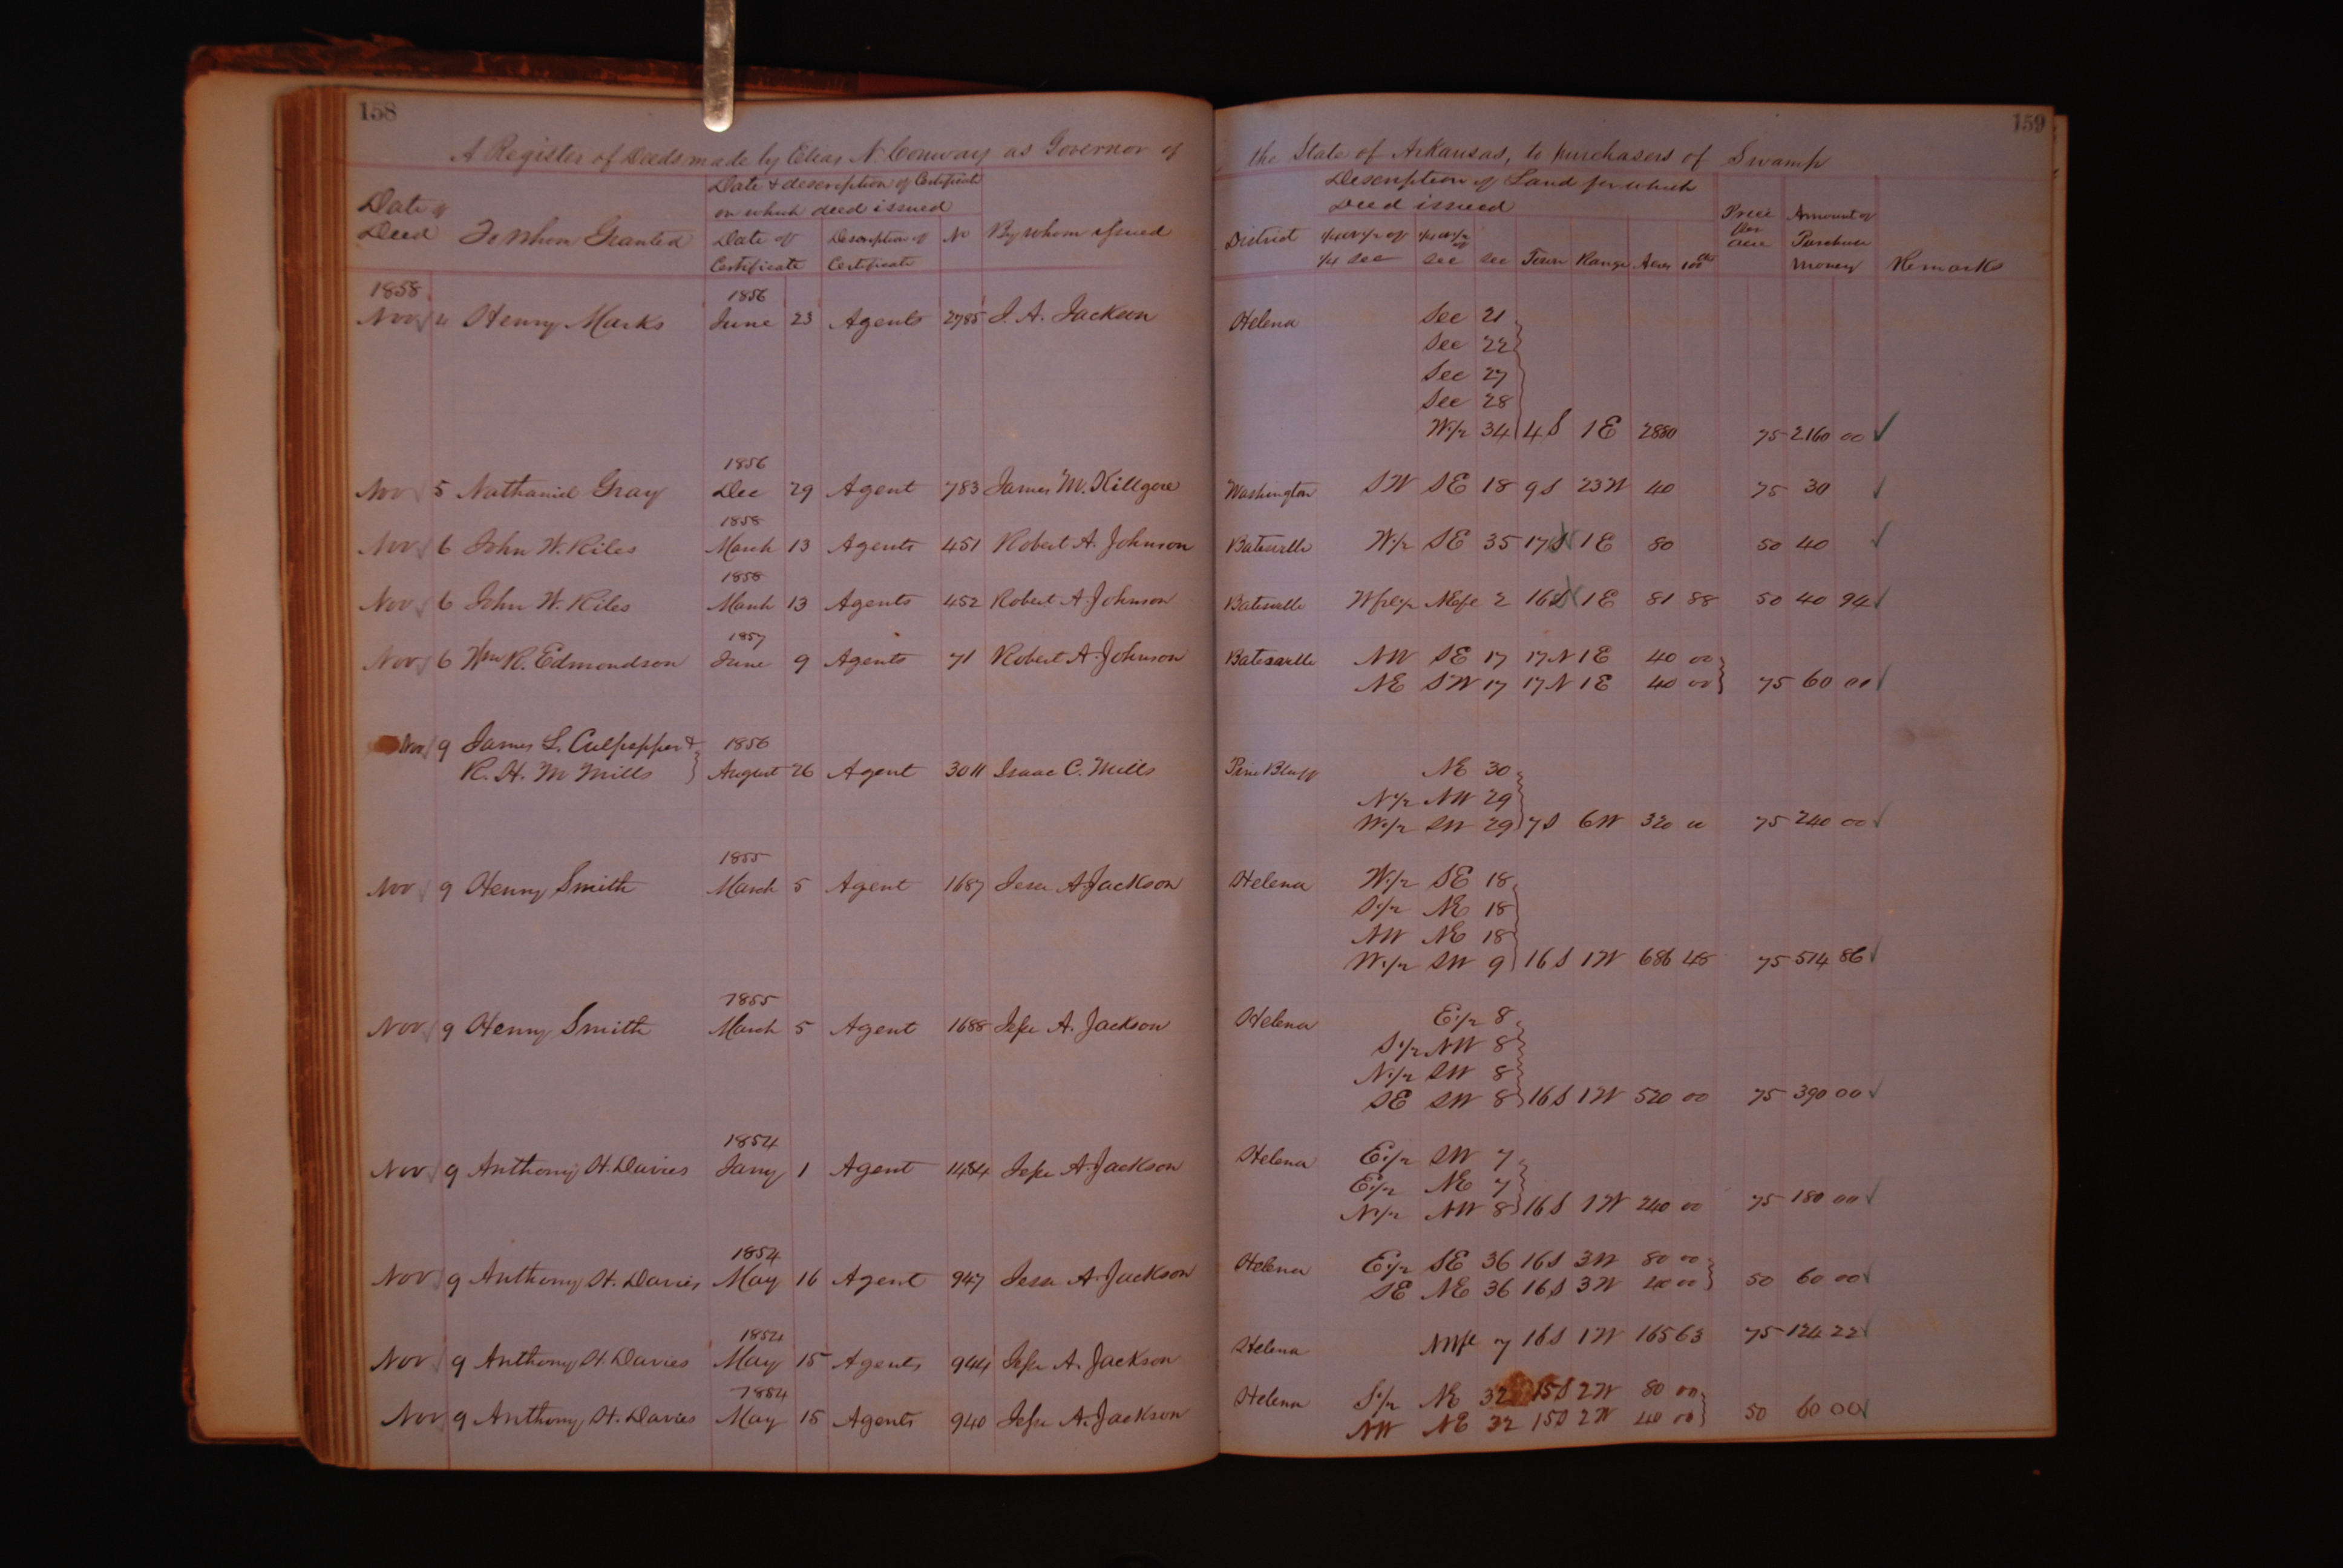 158
A Register of Deeds made by Elias N. Conway as Governor of
Date of Deed To Whom Granted Date & description of Certificate on which deed issued
Date of Certificate Description of Certificate No By whom issued
1858 1856
Nov 4 Henry Marks June 23 Agents 2785 J. A. Jackson
1856
Nov 5 Nathaniel Gray Dec 29 Agent 783 James M. Killgore
1858
Nov 6 John W. Kiles March 13 Agents 451 Robert A. Johnson
1858
Nov 6 John W. Kiles March 13 Agents 452 Robert A. Johnson
1857
Nov 6 Wm R. Edmondson June 9 Agents 71 Robert A. Johnson
Nov 9 James L. Culpepper & 1856
R. H. M Mills August 26 Agent 3011 Isaac C. Mills
1855
Nov 9 Henry Smith March 5 Agent 1687 Jesse A. Jackson
1855
Nov 9 Henry Smith March 5 Agent 1688 Jesse A. Jackson
1854
Nov 9 Anthony H. Davies Jany 1 Agent 1484 Jesse A. Jackson
1854
Nov 9 Anthony H. Davies May 16 Agent 947 Jesse A. Jackson
1854
Nov 9 Anthony H. Davies May 15 Agents 944 Jesse A. Jackson
1854
Nov 9 Anthony H. Davies May 15 Agents 940 Jesse A. Jackson
159
the State of Arkansas, to purchasers of Swamp
Description of Land for which
Deed issued
District 1/4 or 1/2 of 1/4 Sec 1/4 or 1/2 of Sec Sec Town Range Acres 100ths Price Per acre Amount of Purchase Money Remarks
Helena Sec 21
Sec 22
Sec 27
Sec 28
W 1/2 34 4 S 1 E 2880 75 2160 00 ✓
Washington SW SE 18 9 S 23 W 40 75 30 ✓
Batesville W 1/2 SE 35 17 1 E 80 50 40 ✓
Batesville NE 2 16 1 E 81 88 50 40 94 ✓
Batesville NW SE 17 17 N 1 E 40 00
NE SW 17 17 N 1 E 40 00 75 60 00 ✓
Pine Bluff NE 30
N 1/2 NW 29
W 1/2 SW 29 7 S 6 W 320 00 75 240 00 ✓
Helena W 1/2 SE 18
S 1/2 NE 18
NW NE 18
W 1/2 SW 9 16 S 1 W 686 48 75 514 86 ✓
Helena E 1/2 8
S 1/2 NW 8
N 1/2 SW 8
SE SW 8 16 S 1 W 520 00 75 390 00 ✓
Helena E 1/2 SW 7
E 1/2 NE 7
N 1/2 NW 8 16 S 1 W 240 00 75 180 00 ✓
Helena E 1/2 SE 36 16 S 3 W 80 00
SE NE 36 16 S 3 W 40 00 50 60 00 ✓
Helena 7 16 S 1 W 165 63 75 124 22 ✓
Helena S 1/2 NE 32 15 S 2 W 80 00
NW NE 32 15 S 2 W 40 00 50 60 00 ✓